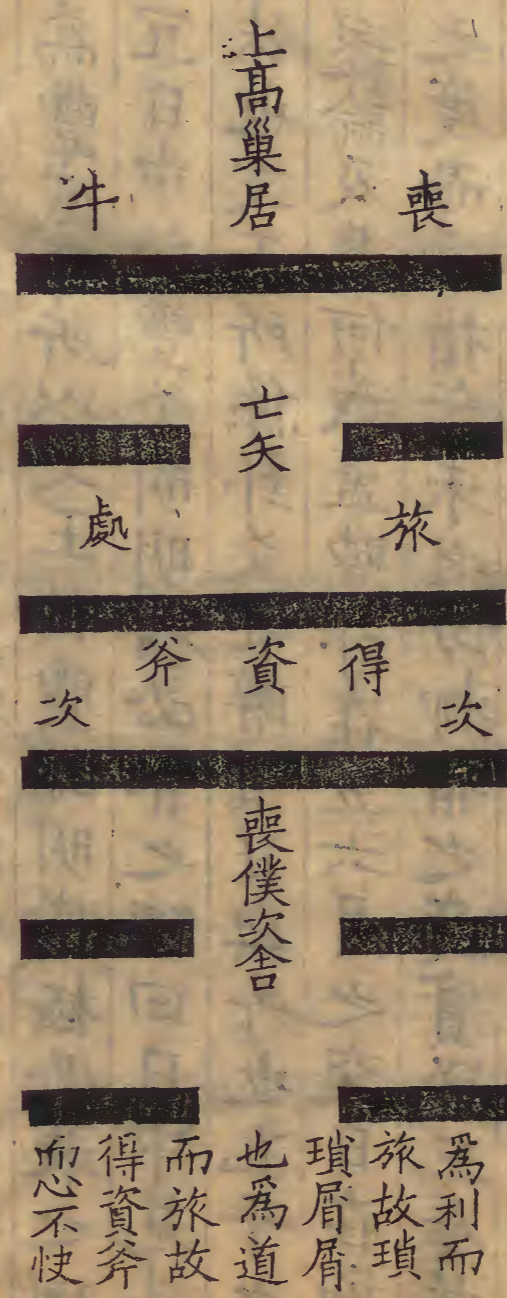 上高巢居
喪牛
亡矢
旅處
得資斧
次次
喪僕次舍
爲利而
旅故瑣
瑣屑屑
也爲道
而旅故
得資斧
而心不快